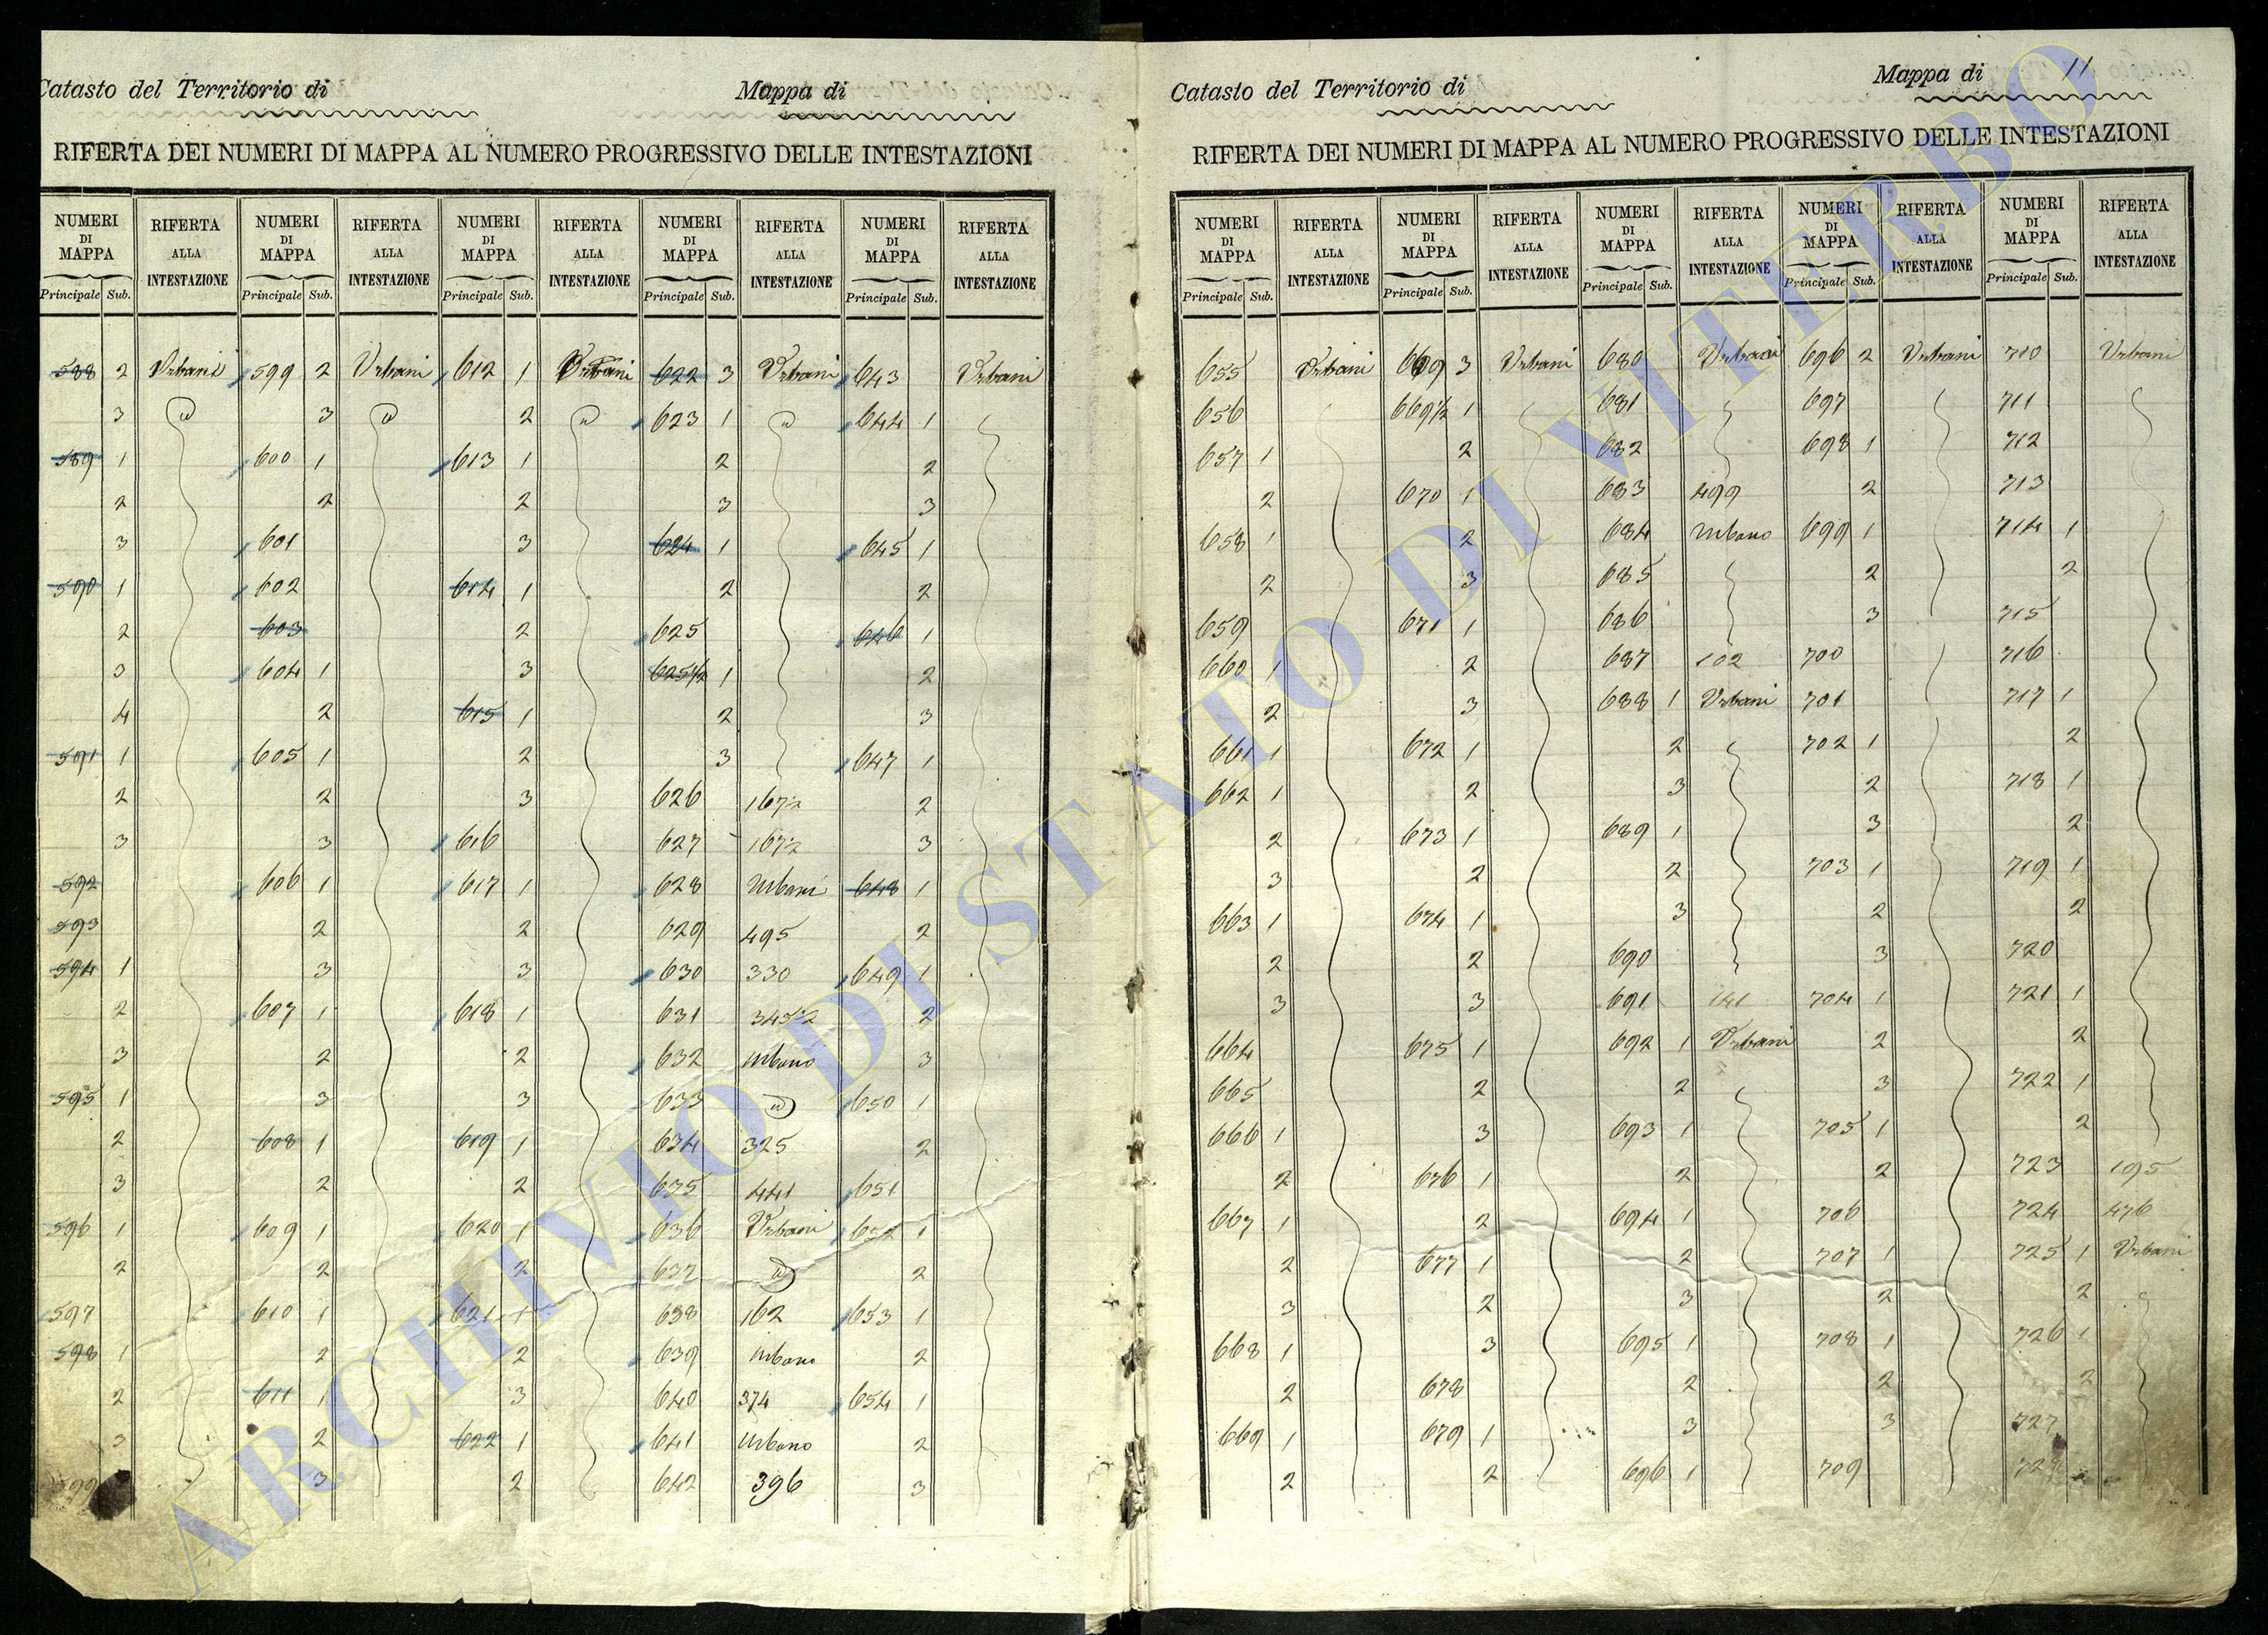 Catasto del Territorio di Mappa di
RIFERTA DEI NUMERI DI MAPPA AL NUMERO PROGRESSIVO DELLE INTESTAZIONI
NUMERI DI MAPPA RIFERTA ALLA INTESTAZIONE NUMERI DI MAPPA RIFERTA ALLA INTESTAZIONE NUMERI DI MAPPA RIFERTA ALLA INTESTAZIONE NUMERI DI MAPPA RIFERTA ALLA INTESTAZIONE NUMERI DI MAPPA RIFERTA ALLA INTESTAZIONE
Principale Sub. Principale Sub. Principale Sub. Principale Sub. Principale Sub.
588 2 Urbani 599 2 Urbani 612 1 Urbani 622 3 Urbani 643 Urbani
3 id 3 id 2 id 623 1 id 644 1
589 1 600 1 613 1 2 2
2 2 2 3 3
3 601 3 624 1 645 1
590 1 602 614 1 2 2
2 603 2 625 646 1
3 604 1 3 625½ 1 2
4 2 615 1 2 3
591 1 605 1 2 3 647 1
2 2 3 626 167½ 2
3 3 616 627 167½ 3
592 606 1 617 1 628 Urbani 648 1
593 2 2 629 495 2
594 1 3 3 630 330 649 1
2 607 1 618 1 631 345½ 2
3 2 2 632 Urbano 3
595 1 3 3 633 id 650 1
2 608 1 619 1 634 325 2
3 2 2 635 441 651
596 1 609 1 620 1 636 Urbani 652 1
2 2 2 637 id 2
597 610 1 621 1 638 162 653 1
598 1 2 2 639 Urbano 2
2 611 1 3 640 374 654 1
3 2 622 1 641 Urbano 2
599 3 2 642 396 3
Catasto del Territorio di Mappa di 11
RIFERTA DEI NUMERI DI MAPPA AL NUMERO PROGRESSIVO DELLE INTESTAZIONI
NUMERI DI MAPPA RIFERTA ALLA INTESTAZIONE NUMERI DI MAPPA RIFERTA ALLA INTESTAZIONE NUMERI DI MAPPA RIFERTA ALLA INTESTAZIONE NUMERI DI MAPPA RIFERTA ALLA INTESTAZIONE NUMERI DI MAPPA RIFERTA ALLA INTESTAZIONE
Principale Sub. Principale Sub. Principale Sub. Principale Sub. Principale Sub.
655 Urbani 669 3 Urbani 680 Urbani 696 2 Urbani 710 Urbani
656 669½ 1 681 697 711
657 1 2 682 698 1 712
2 670 1 683 499 2 713
658 1 2 684 Urbano 699 1 714 1
2 3 685 2 2
659 671 1 686 3 715
660 1 2 687 102 700 716
2 3 688 1 Urbani 701 717 1
661 1 672 1 2 702 1 2
662 1 2 3 2 718 1
2 673 1 689 1 3 2
3 2 2 703 1 719 1
663 1 674 1 3 2 2
2 2 690 3 720
3 3 691 141 704 1 721 1
664 675 1 692 1 Urbani 2 2
665 2 2 3 722 1
666 1 3 693 1 705 1 2
2 676 1 2 2 723 195
667 1 2 694 1 706 724 476
2 677 1 2 707 1 725 1 Urbani
3 2 3 2 2
668 1 3 695 1 708 1 726 1
2 678 2 2 2
669 1 679 1 3 3 727
2 2 696 1 709
ARCHIVIO DI STATO DI VITERBO